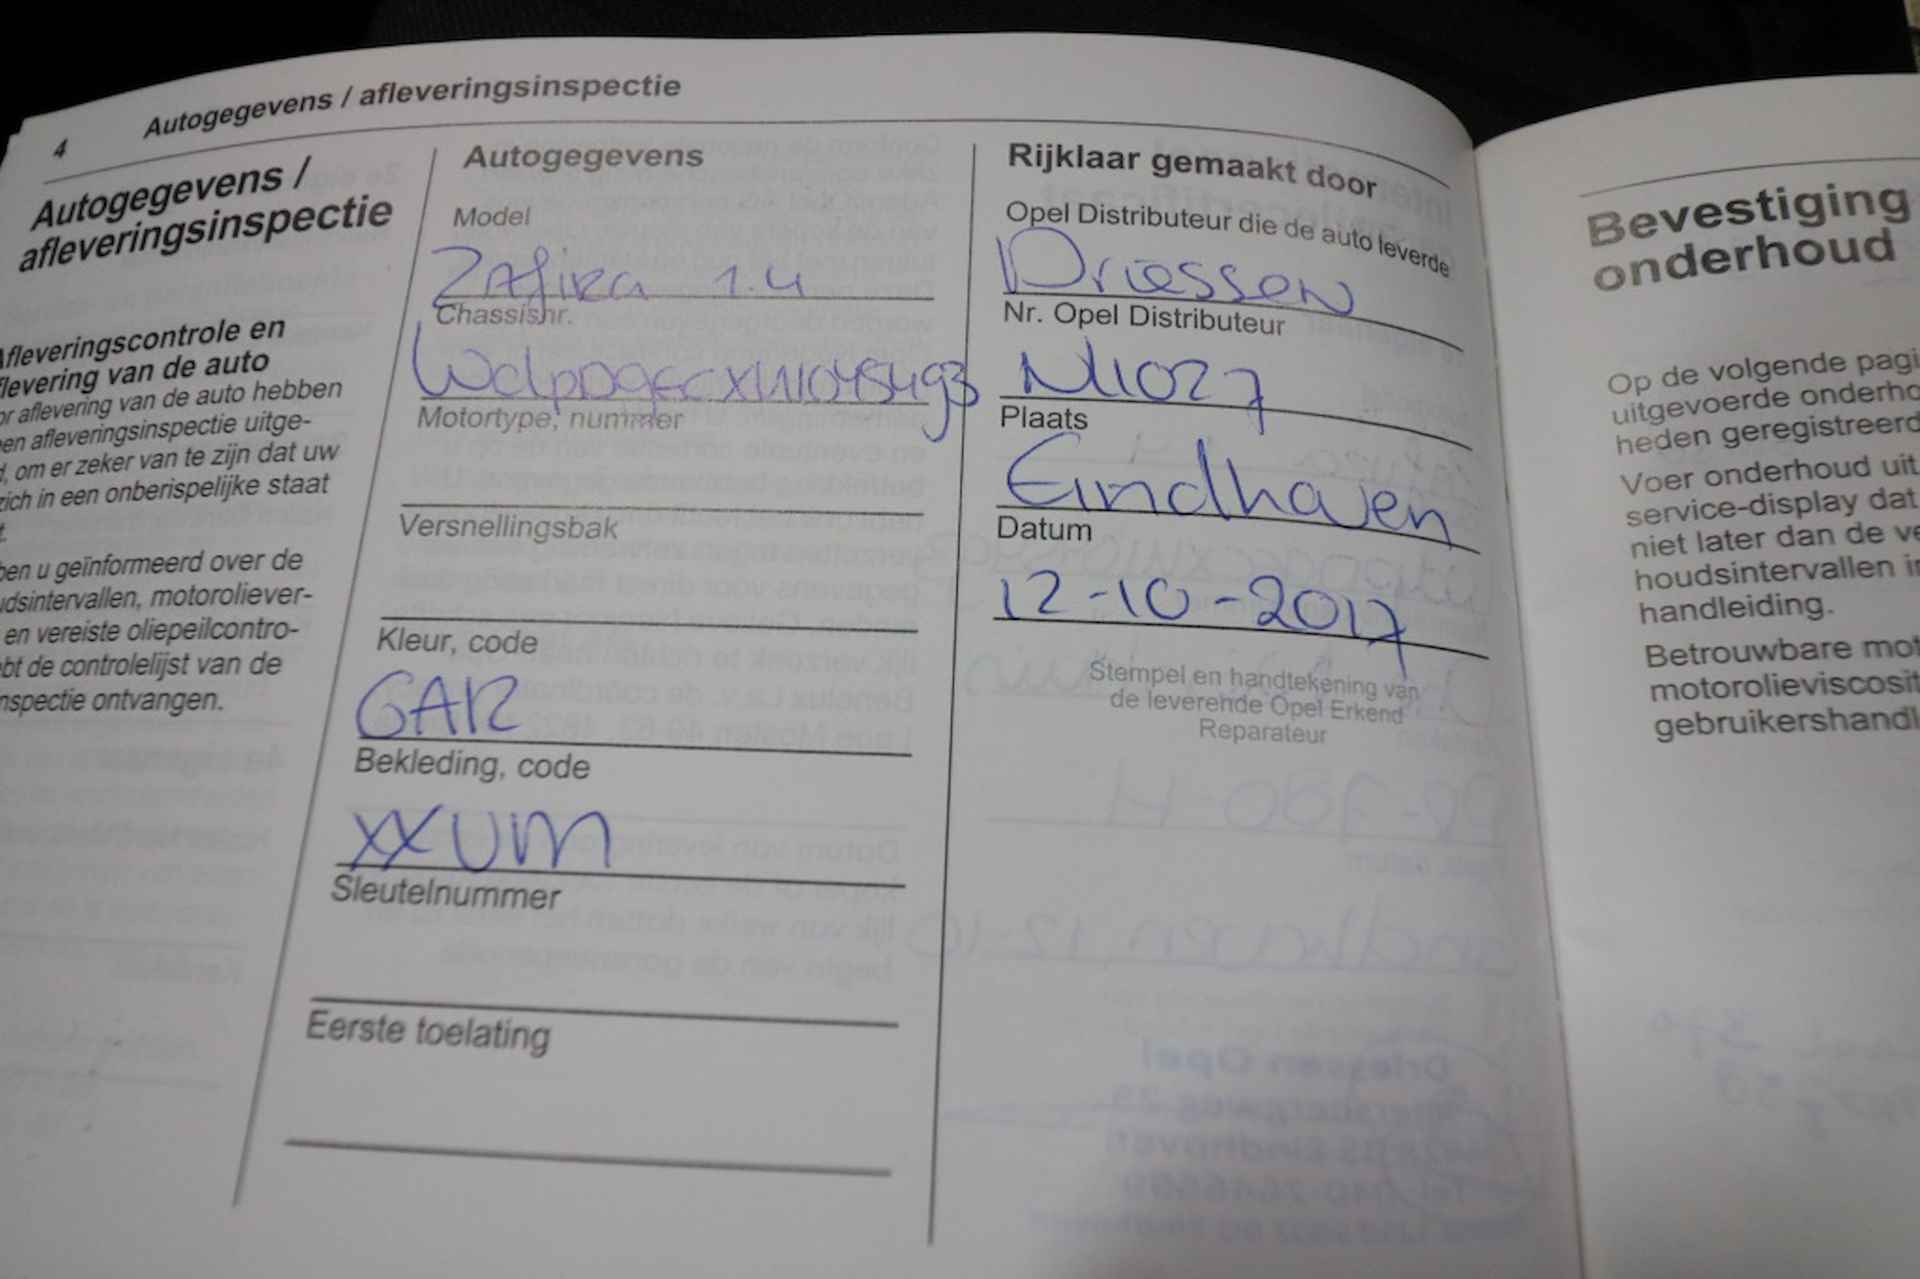 4 Autogegevens / afleveringsinspectie
Autogegevens /
afleveringsinspectie
Afleveringscontrole en
aflevering van de auto
or aflevering van de auto hebben
en afleveringsinspectie uitge-
d, om er zeker van te zijn dat uw
zich in een onberispelijke staat
t.
ben u geïnformeerd over de
udsintervallen, motoroliever-
en vereiste oliepeilcontro-
ebt de controlelijst van de
nspectie ontvangen.
Autogegevens
Model
Zafira 1.4
Chassisnr.
Motortype, nummer
Versnellingsbak
Kleur, code
GAR
Bekleding, code
XXUM
Sleutelnummer
Eerste toelating
Rijklaar gemaakt door
Opel Distributeur die de auto leverde
Driessen
Nr. Opel Distributeur
NL1027
Plaats
Eindhoven
Datum
12-10-2017
Stempel en handtekening van
de leverende Opel Erkend
Reparateur
Bevestiging
onderhoud
Op de volgende pagi
uitgevoerde onderho
heden geregistreerd
Voer onderhoud uit
service-display dat
niet later dan de ve
houdsintervallen in
handleiding.
Betrouwbare mot
motorolieviscosit
gebruikershandl